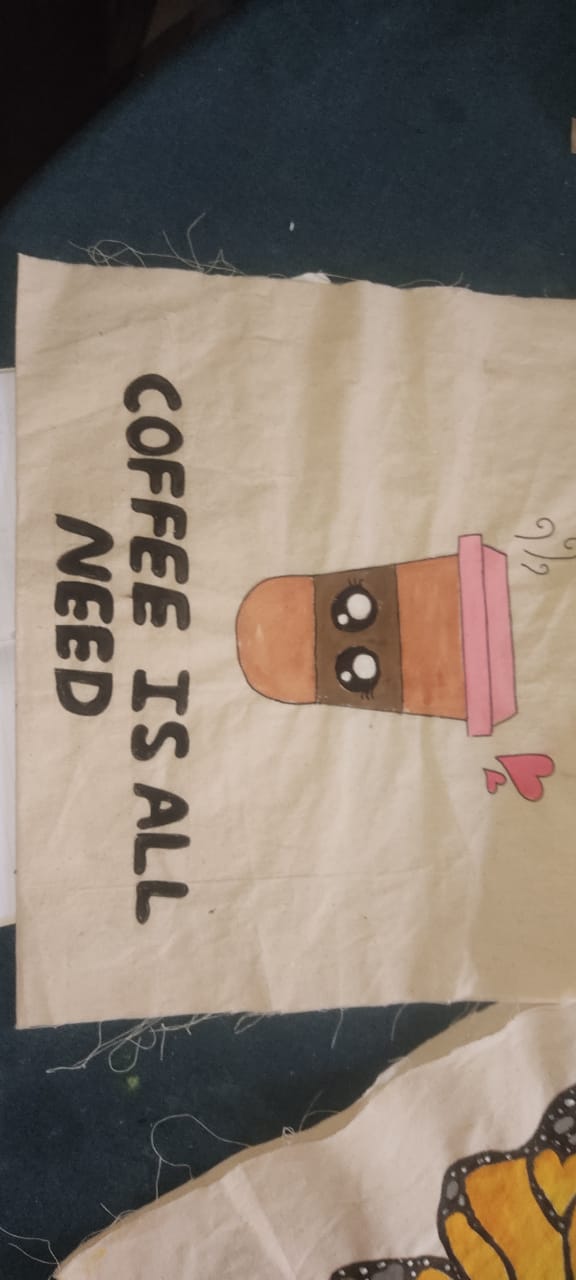 COFFEE IS ALL
NEED